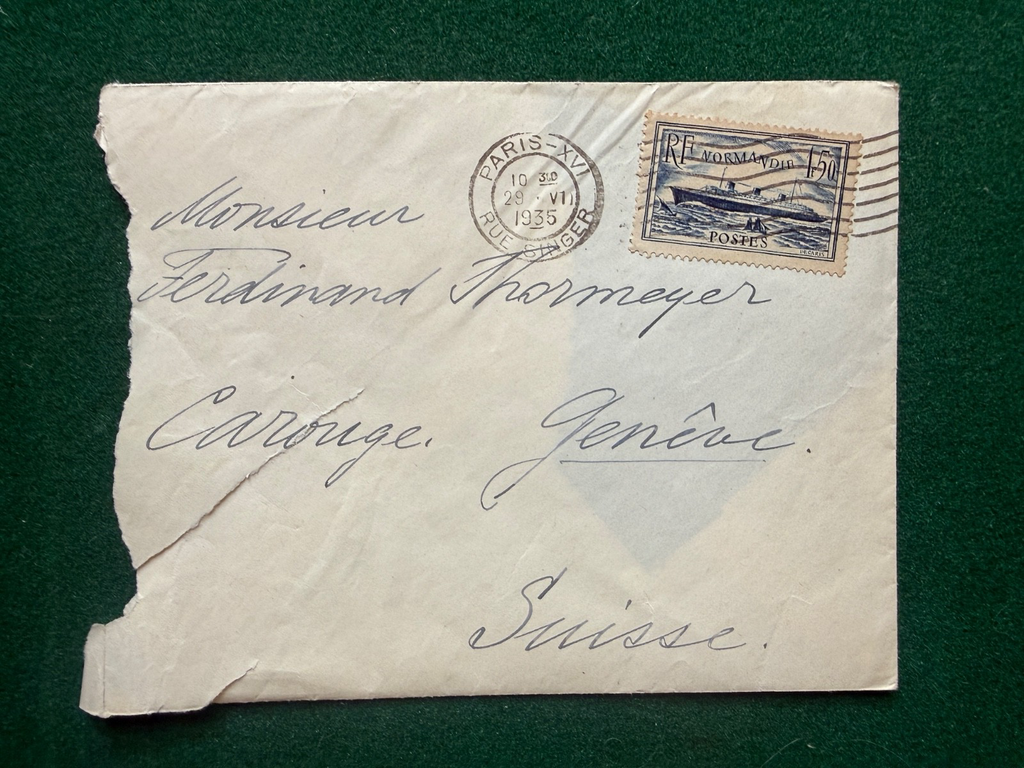 PARIS-XVI
10 30
29 . VII
1935
RUE SINGER
RF NORMANDIE 1F50
POSTES
DECARIS
Monsieur
Ferdinand Thormeyer
Carouge. Genêve.
Suisse.